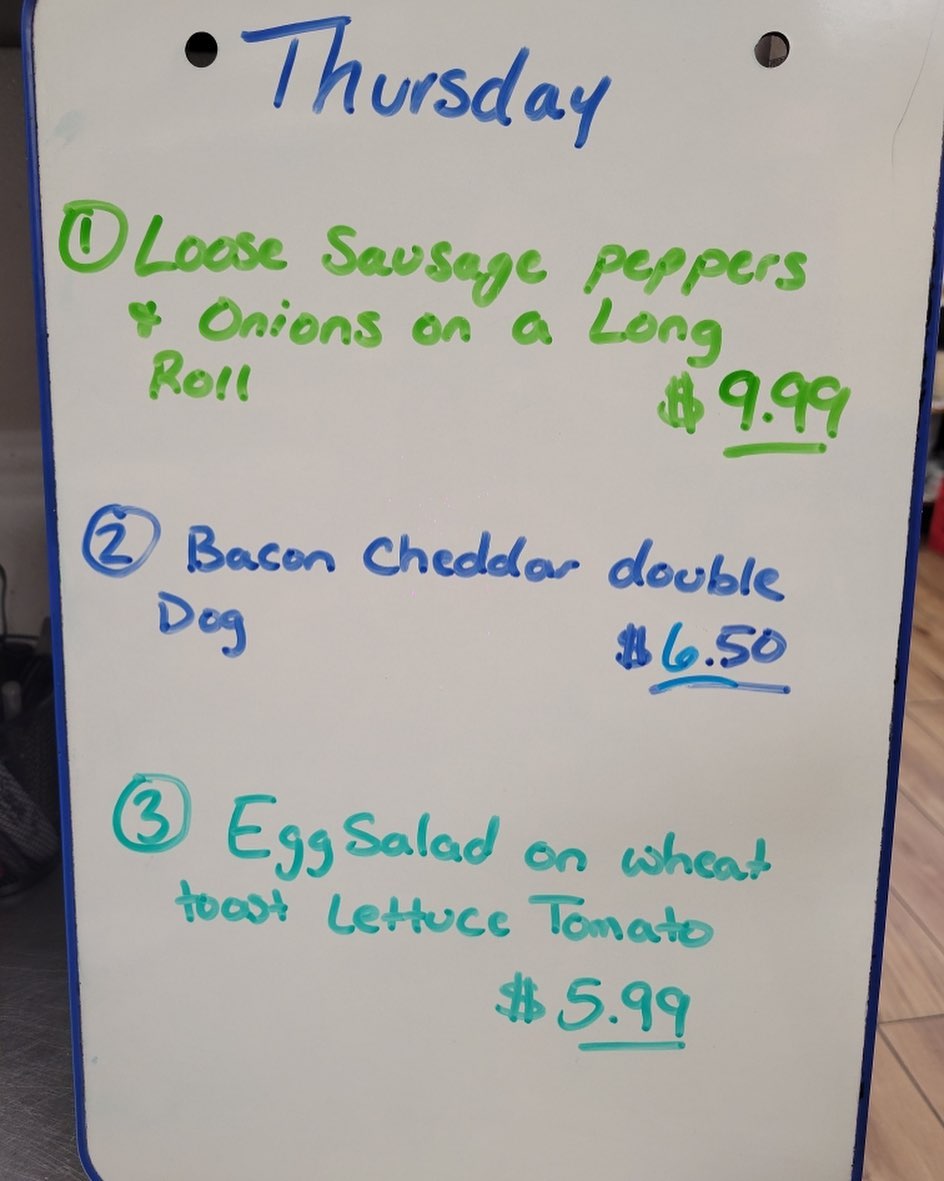 Thursday
① Loose Sausage peppers
& Onions on a Long
Roll $9.99
② Bacon Cheddar double
Dog $6.50
③ Egg Salad on wheat
toast Lettuce Tomato
$5.99